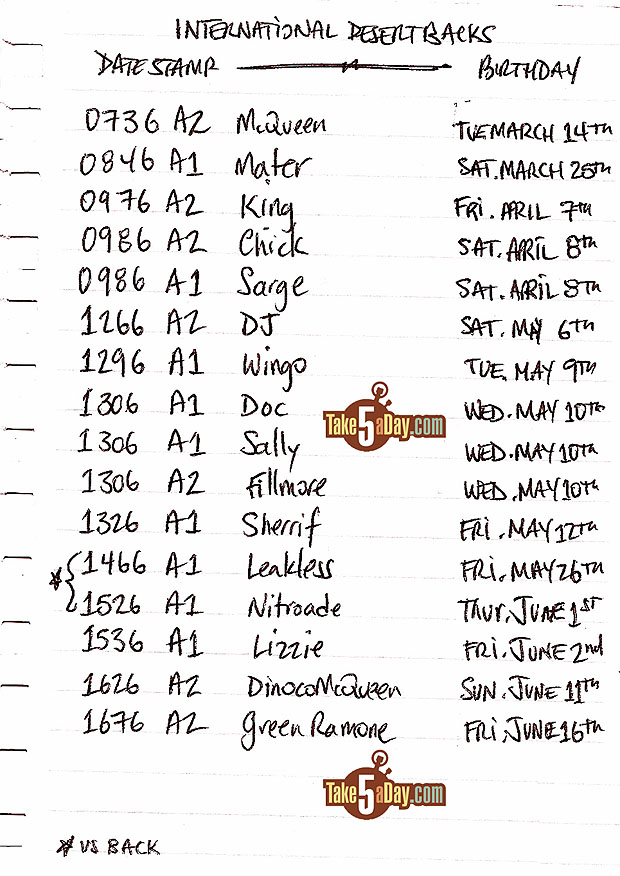 INTERNATIONAL DESERT BACKS
DATE STAMP BIRTHDAY
0736 A2 McQueen TUE MARCH 14TH
0846 A1 Mater SAT. MARCH 25TH
0976 A2 King FRI. APRIL 7TH
0986 A2 Chick SAT. APRIL 8TH
0986 A1 Sarge SAT. APRIL 8TH
1266 A2 DJ SAT. MAY 6TH
1296 A1 Wingo TUE. MAY 9TH
1306 A1 Doc WED. MAY 10TH
Take 5 aDay.com
1306 A1 Sally WED. MAY 10TH
1306 A2 Fillmore WED. MAY 10TH
1326 A1 Sherrif FRI. MAY 12TH
1466 A1 Leakless FRI. MAY 26TH
1526 A1 Nitroade THUR. JUNE 1ST
1536 A1 Lizzie FRI. JUNE 2nd
1626 A2 Dinoco McQueen SUN. JUNE 11TH
1676 A2 Green Ramone FRI. JUNE 16TH
Take 5 aDay.com
* US BACK